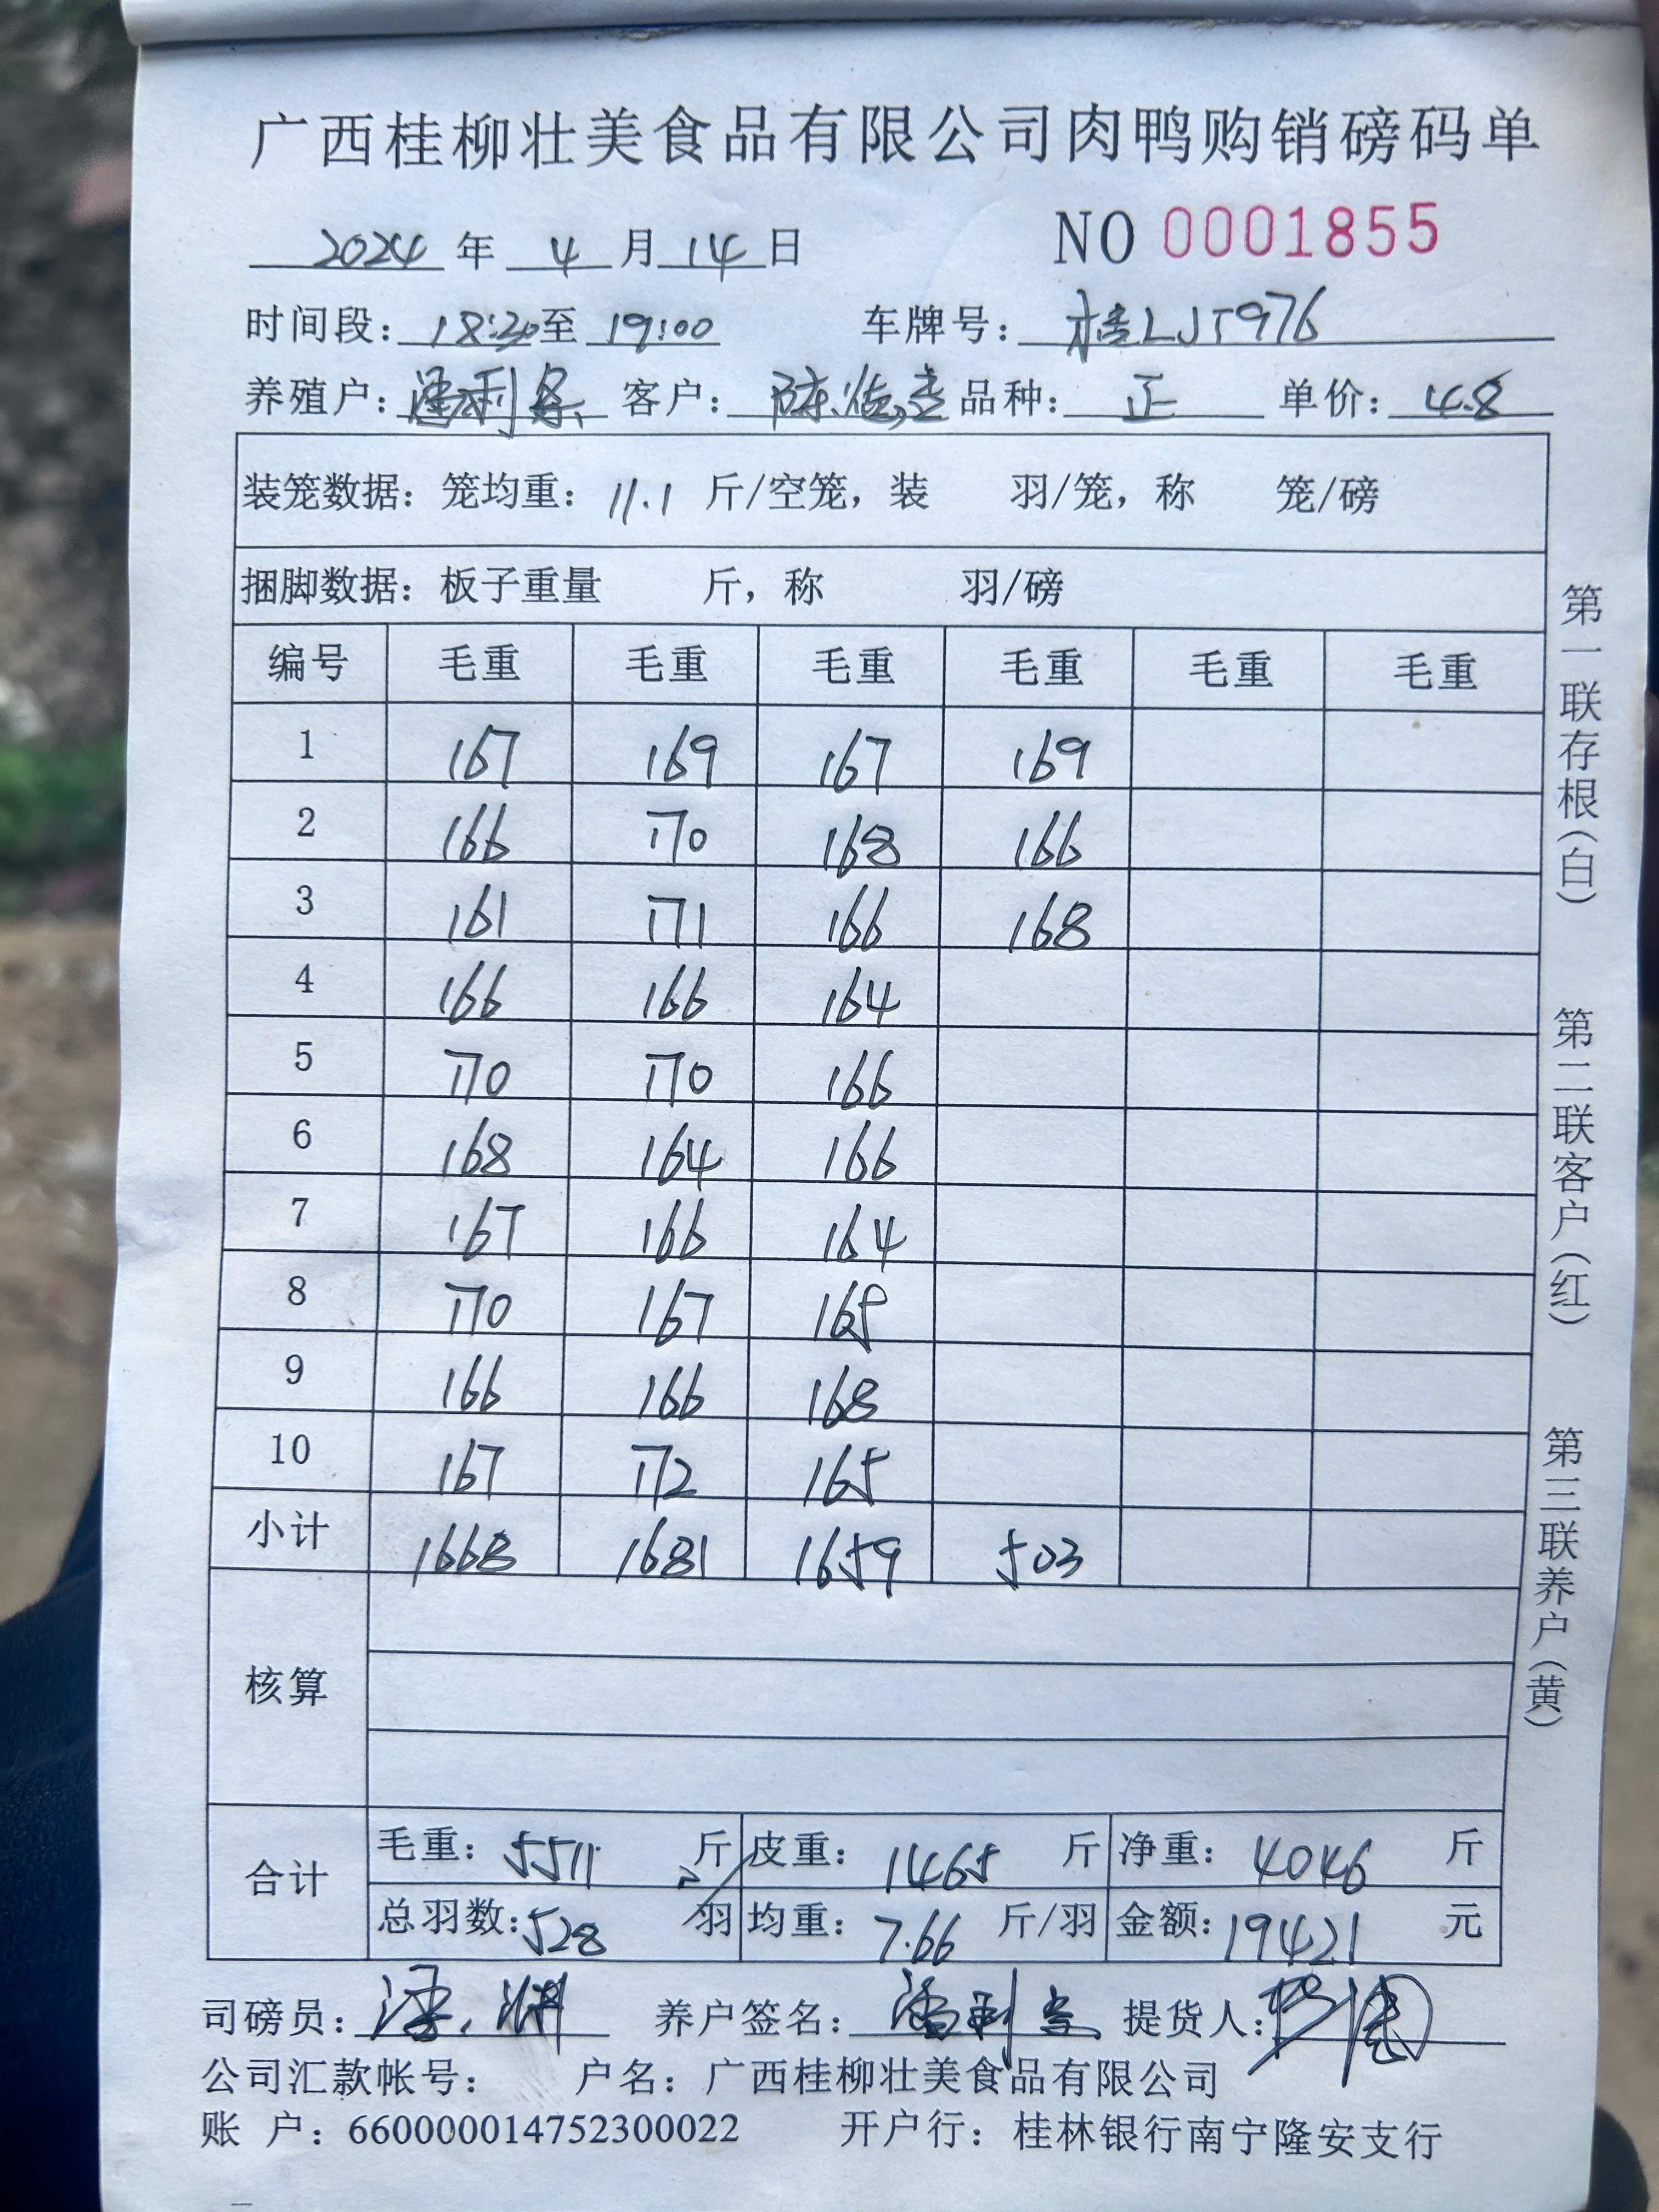 广西桂柳壮美食品有限公司肉鸭购销磅码单
2024 年 4 月 14 日 NO 0001855
时间段: 18:20 至 19:00 车牌号: 桂LJ5976
养殖户: 潘利 客户: 陈 品种: 正 单价: 4.8
装笼数据: 笼均重: 11.1 斤/空笼, 装 羽/笼, 称 笼/磅
捆脚数据: 板子重量 斤, 称 羽/磅
编号 毛重 毛重 毛重 毛重 毛重 毛重
1 167 169 167 169
2 166 170 168 166
3 161 171 166 168
4 166 166 164
5 170 170 166
6 168 164 166
7 167 166 164
8 170 167 165
9 166 166 168
10 167 172 165
小计 1668 1681 1659 503
核算
合计 毛重: 5511 斤 皮重: 1465 斤 净重: 4046 斤
总羽数: 528 羽 均重: 7.66 斤/羽 金额: 19421 元
司磅员: 养户签名: 潘利 提货人:
公司汇款帐号: 户名: 广西桂柳壮美食品有限公司
账 户: 660000014752300022 开户行: 桂林银行南宁隆安支行
第一联存根(白) 第二联客户(红) 第三联养户(黄)